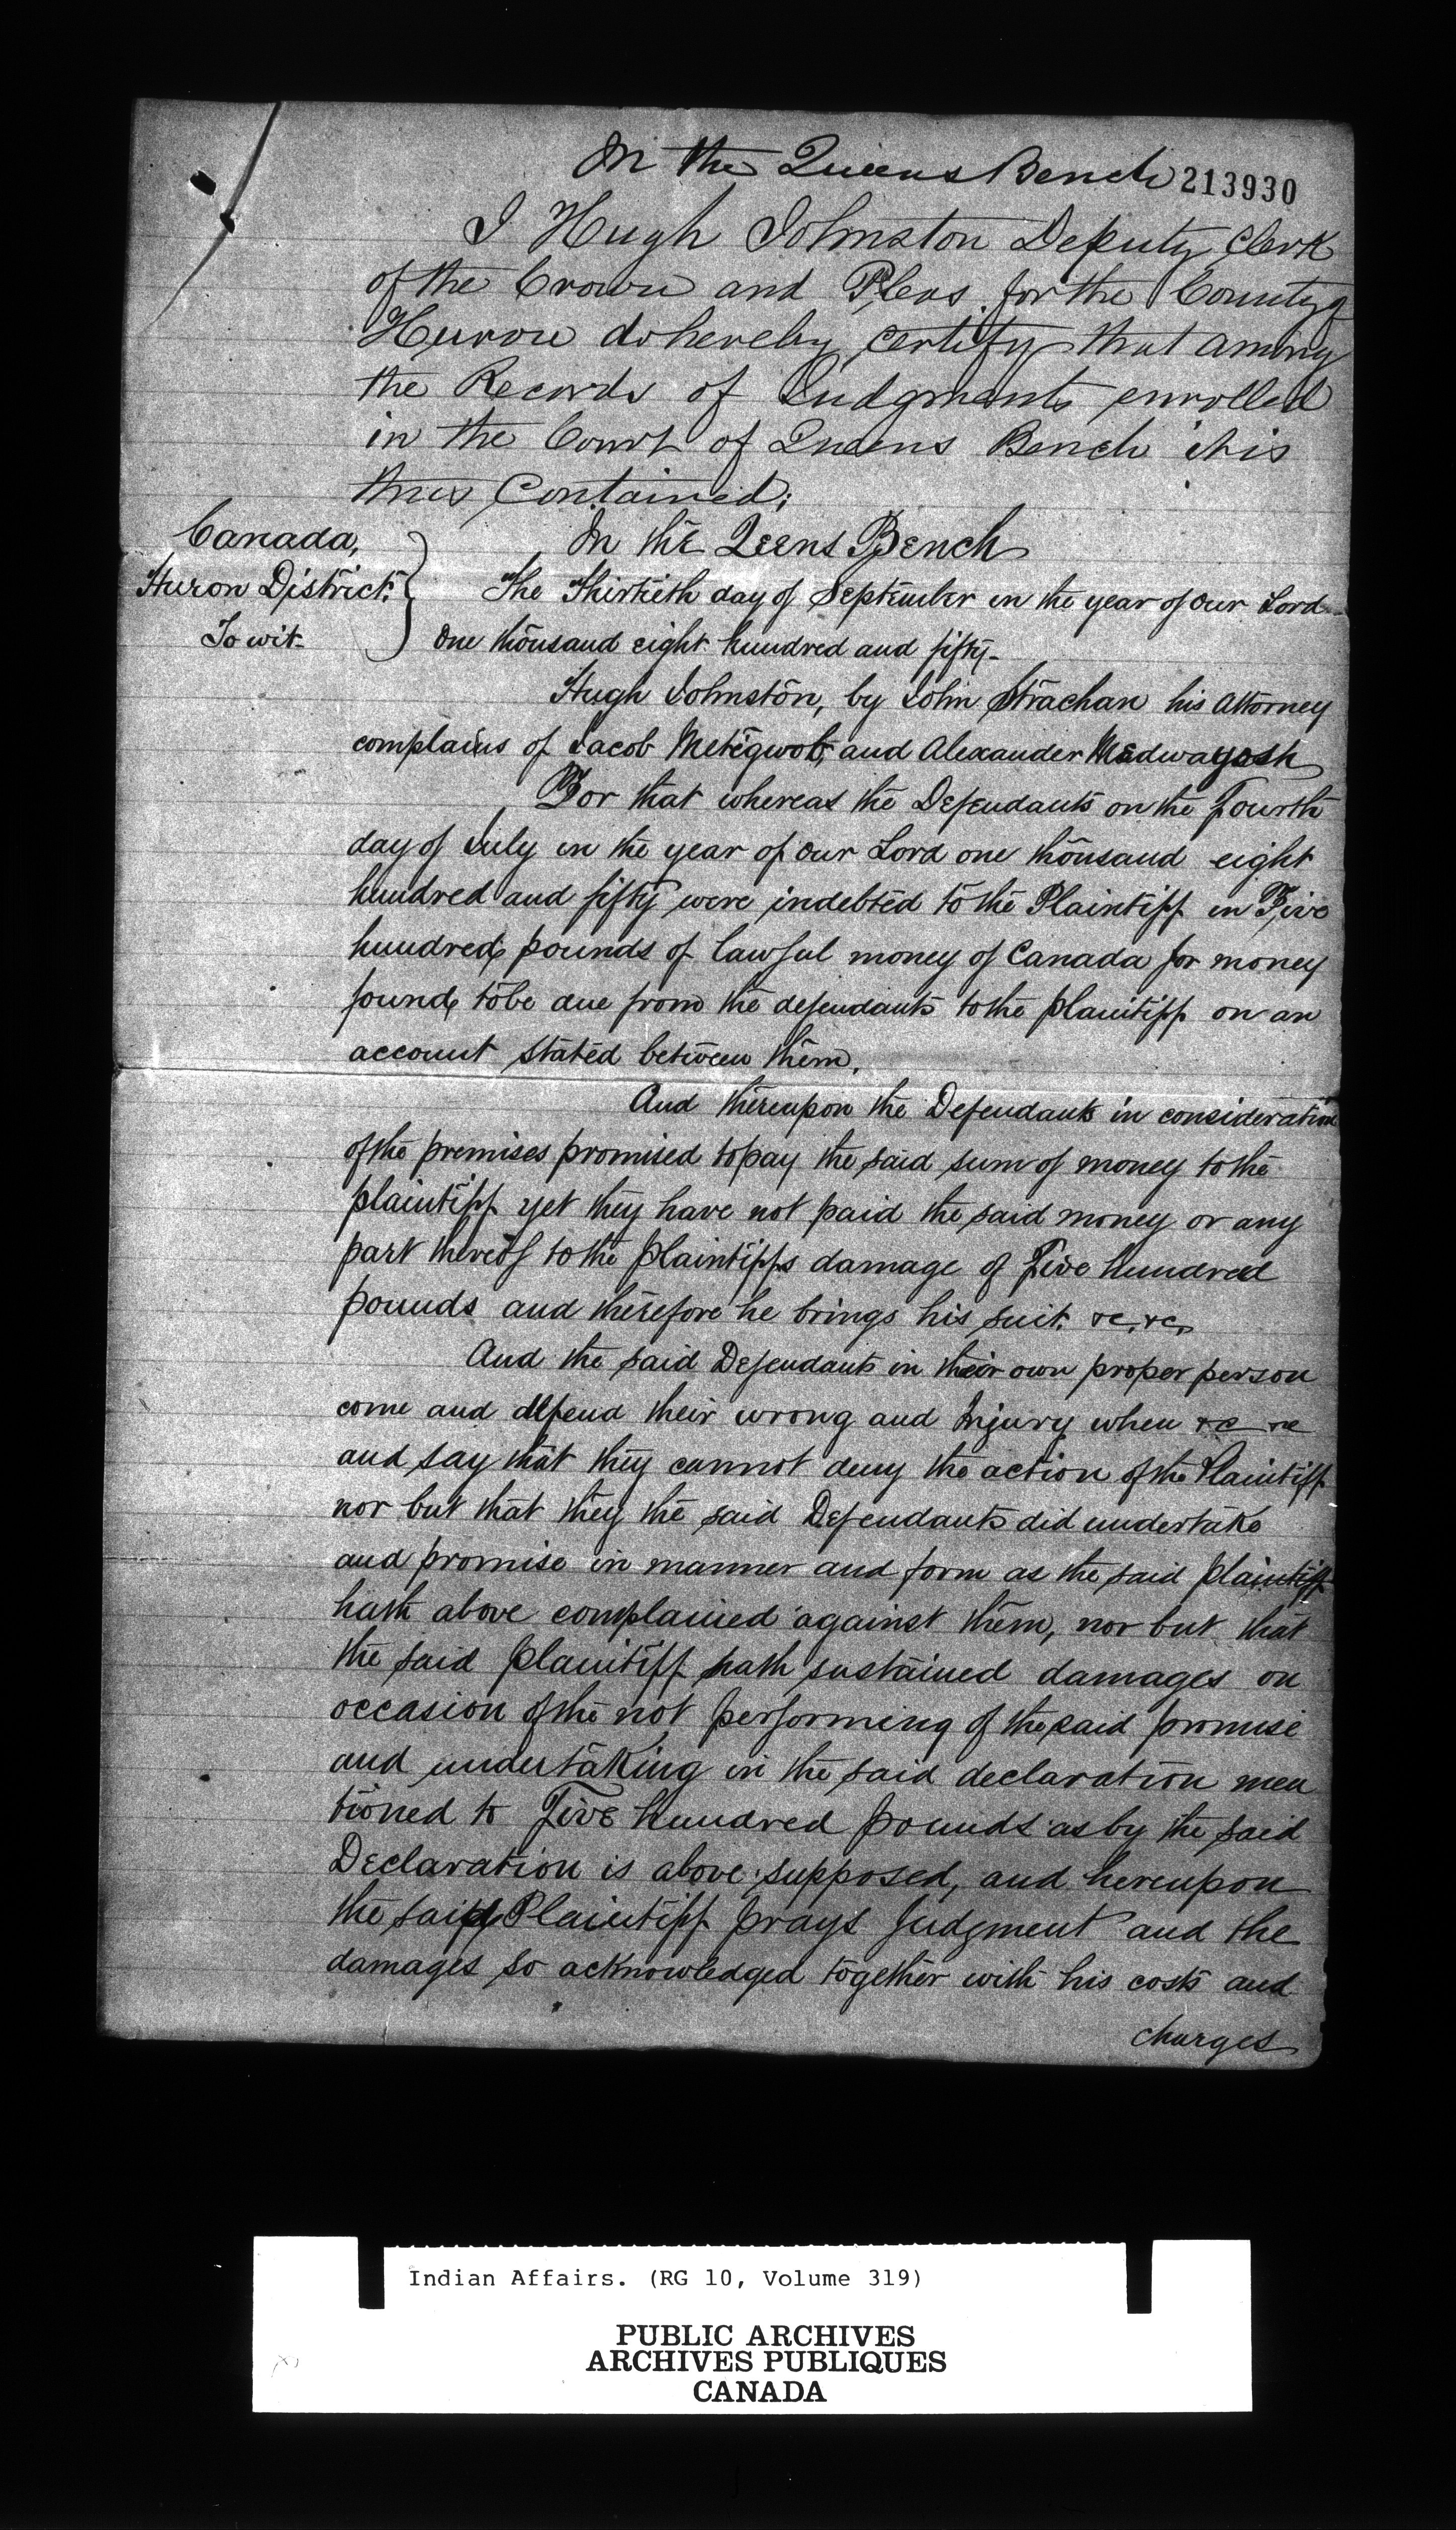 In the Queens Bench 213930
I Hugh Johnston Deputy Clerk
of the Crown and Pleas for the County of
Huron do hereby certify that among
the Records of Judgments enrolled
in the Court of Queens Bench it is
thus Contained;
Canada,
Huron District.
To wit-
In the Qeens Bench
The Thirtieth day of September in the year of our Lord
one thousand eight hundred and fifty-
Hugh Johnston, by John Strachan his Attorney
complains of Jacob Metegwob, and Alexander Madwayosh
For that whereas the Defendants on the Fourth
day of July in the year of our Lord one thousand eight
hundred and fifty were indebted to the Plaintiff in Five
hundred pounds of lawful money of Canada for money
found to be due from the defendants to the plaintiff on an
account stated between them.
And thereupon the Defendants in consideration
of the premises promised to pay the said sum of money to the
plaintiff yet they have not paid the said money or any
part thereof to the plaintiffs damage of Five hundred
pounds and therefore he brings his suit. &c, &c,
And the said Defendants in their own proper person
come and defend their wrong and Injury when &c &c
and say that they cannot deny the action of the Plaintiff
nor but that they the said Defendants did undertake
and promise in manner and form as the said plaintiff
hath above complained against them, nor but that
the said plaintiff hath sustained damages on
occasion of the not performing of the said promise
and undertaking in the said declaration men
tioned to Five hundred pounds as by the said
Declaration is above supposed, and hereupon
the said Plaintiff prays Judgment and the
damages so acknowledged together with his costs and
charges
Indian Affairs. (RG 10, Volume 319)
PUBLIC ARCHIVES
ARCHIVES PUBLIQUES
CANADA